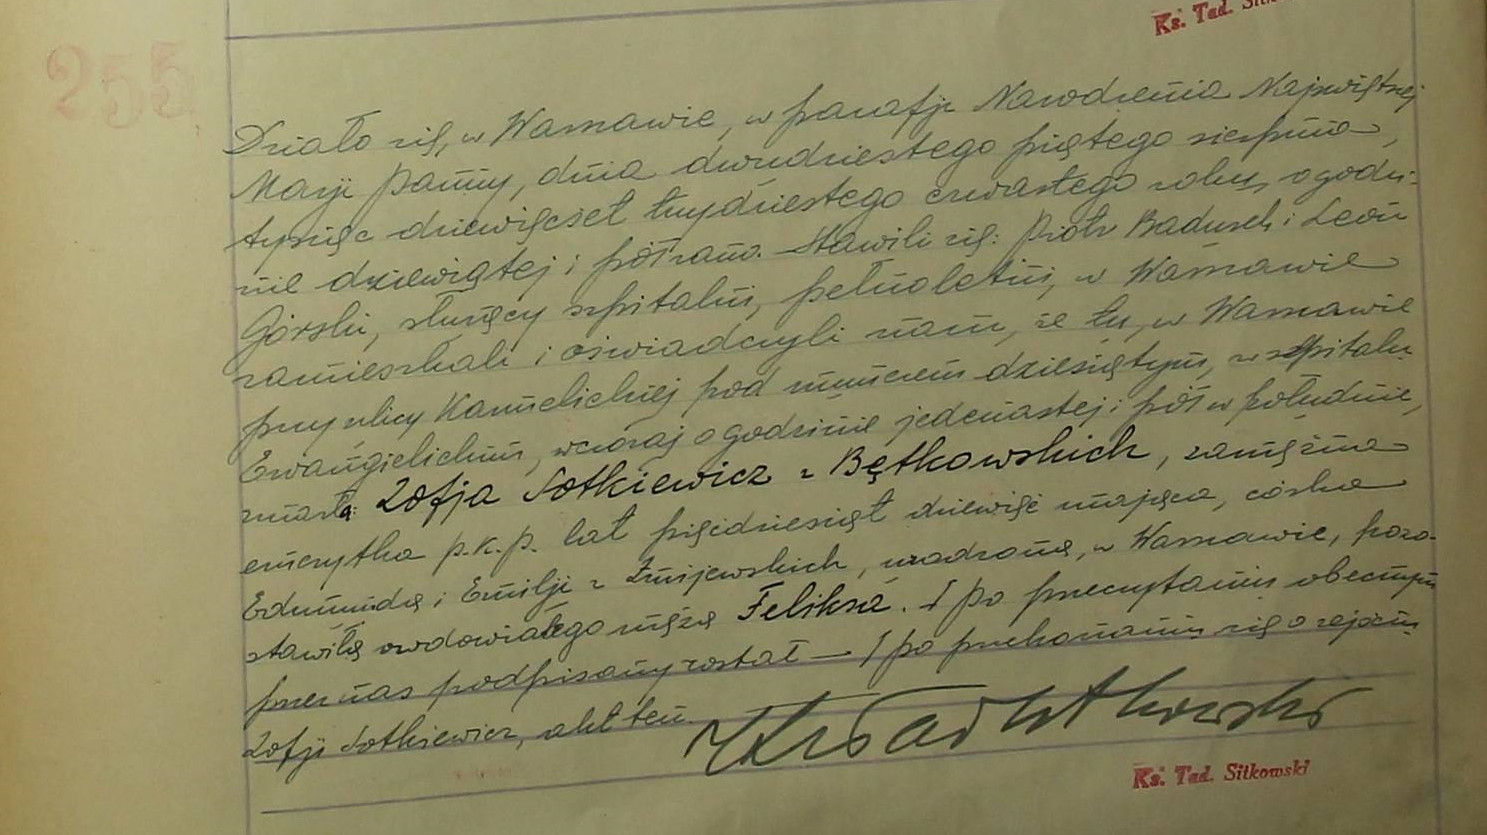 Ks. Tad. Sitk
255
Działo się, w Warszawie, w parafji Narodzenia Najświętszej
Marji Panny, dnia dwudziestego piątego sierpnia,
tysiąc dziewięćset trzydziestego czwartego roku, o godzi-
nie dziewiątej i pół rano. Stawili się: Piotr Baduch i Leon
Górski, służący szpitalni, pełnoletni, w Warszawie
zamieszkali i oświadczyli nam, że tu, w Warszawie
przy ulicy Karmelickiej pod numerem dziesiątym, w szpitalu
Ewangielickim, wczoraj o godzinie jedenastej i pół w południe,
zmarła Zofja Sotkiewicz z Bętkowskich, zamężna
emerytka p.k.p. lat pięćdziesiąt dziewięć mająca, córka
Edmunda i Emilji z Żmijewskich, urodzona, w Warszawie, pozo-
stawiła owdowiałego męża Feliksa. I po przeczytaniu obecnym
przez nas podpisany został — I po przekonaniu się o zejściu
Zofji Sotkiewicz, akt ten
Ks. Tad. Sitkowski